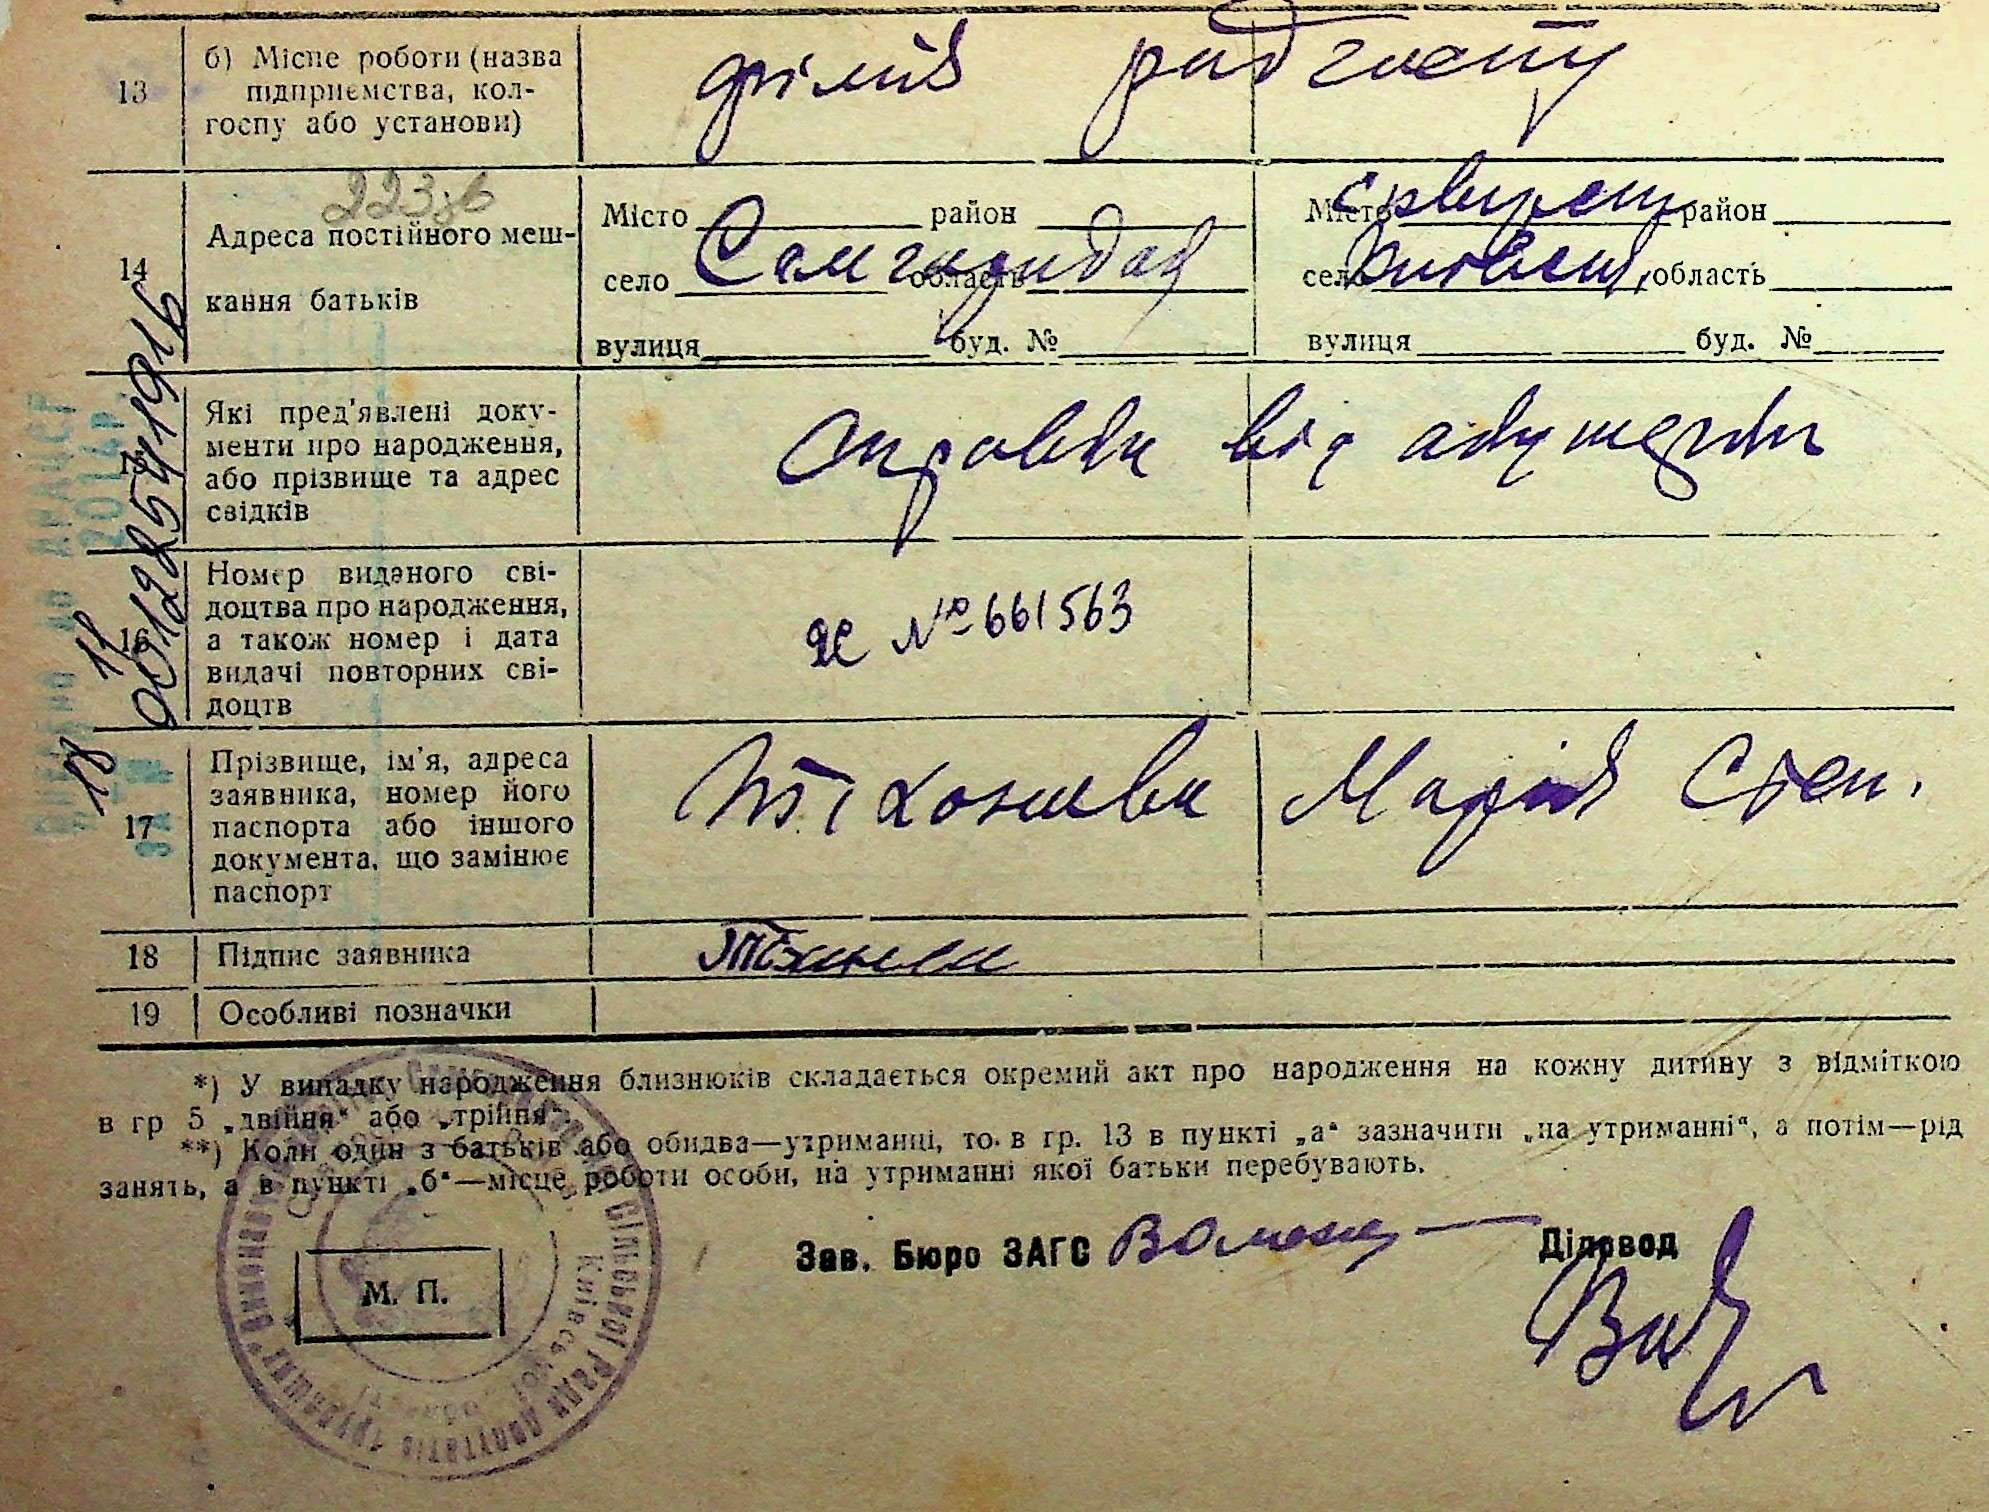 13
б) Місце роботи (назва
підприємства, кол-
госпу або установи)
філія радгоспу
14
223зв
Адреса постійного меш-
кання батьків
Місто район
село Самгородок область
вулиця буд. №
Місто Сквирськ. район
село Київськ. область
вулиця буд. №
15
Які пред'явлені доку-
менти про народження,
або прізвище та адрес
свідків
справка від акушерки
16
Номер виданого сві-
доцтва про народження,
а також номер і дата
видачі повторних сві-
доцтв
№ 661563
17
Прізвище, ім'я, адреса
заявника, номер його
паспорта або іншого
документа, що замінює
паспорт
Марія Степ.
18 Підпис заявника
19 Особливі позначки
*) У випадку народження близнюків складається окремий акт про народження на кожну дитину з відміткою
в гр 5 „двійня“ або „трійня“.
**) Коли один з батьків або обидва—утриманці, то в гр. 13 в пункті „а“ зазначити „на утриманні“, а потім—рід
занять, а в пункті „б“—місце роботи особи, на утриманні якої батьки перебувають.
Зав. Бюро ЗАГС
Діловод
М. П.
сільської Ради депутатів трудящих * Виконавч
Київської області